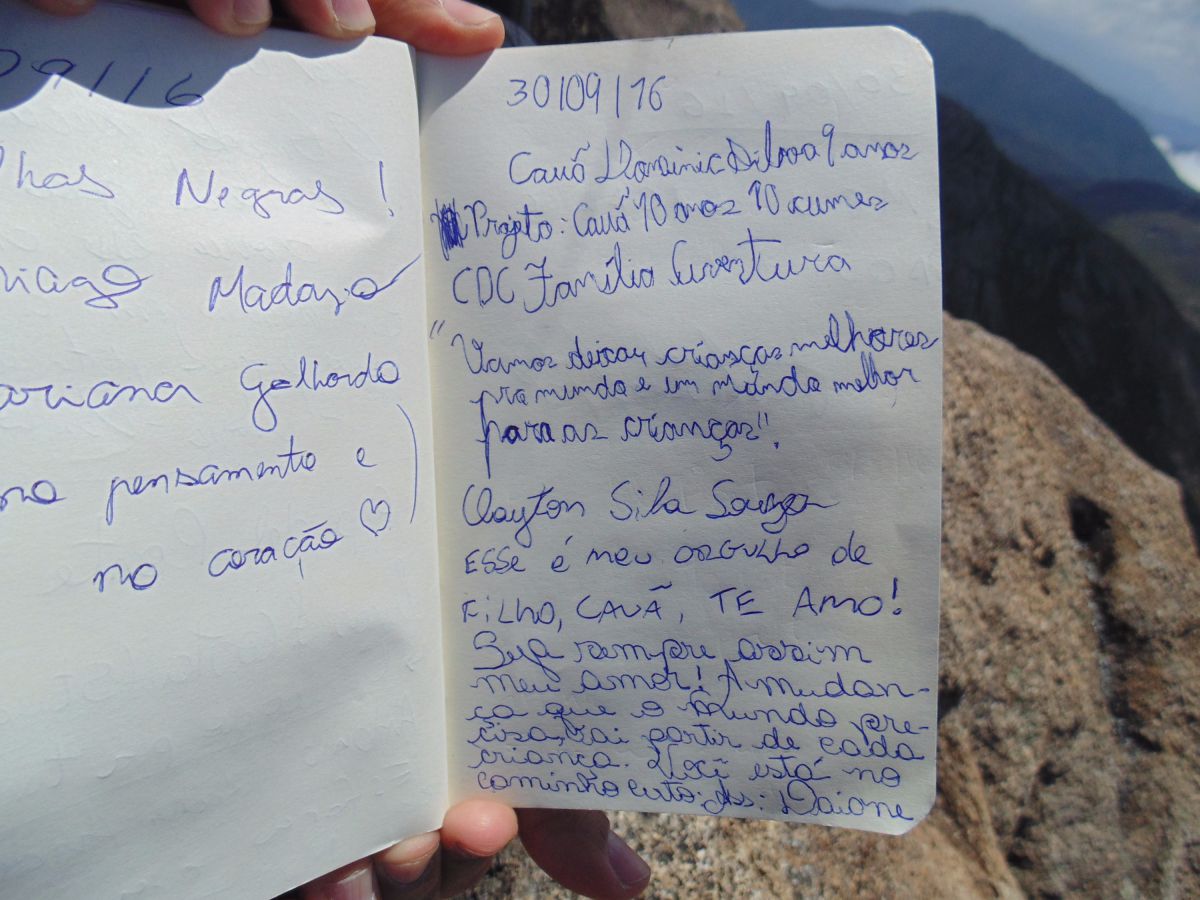 09/16
lhas Negras!
hiago Madazio
ariana Galhardo
no pensamento e
no coração
30/09/16
Cauã Dominic Silva 9 anos
Projeto: Cauã 10 anos 10 cumes
CDC Família Aventura
"Vamos deixar crianças melhores
pro mundo e um mundo melhor
para as crianças".
Clayton Sila Souza
ESSE é meu orgulho de
FILHO, CAUÃ, TE AMO!
Seja sempre assim
meu amor! A mudan-
ça que o mundo pre-
cisa, vai partir de cada
criança. Você está no
caminho certo. Ass: Daiane